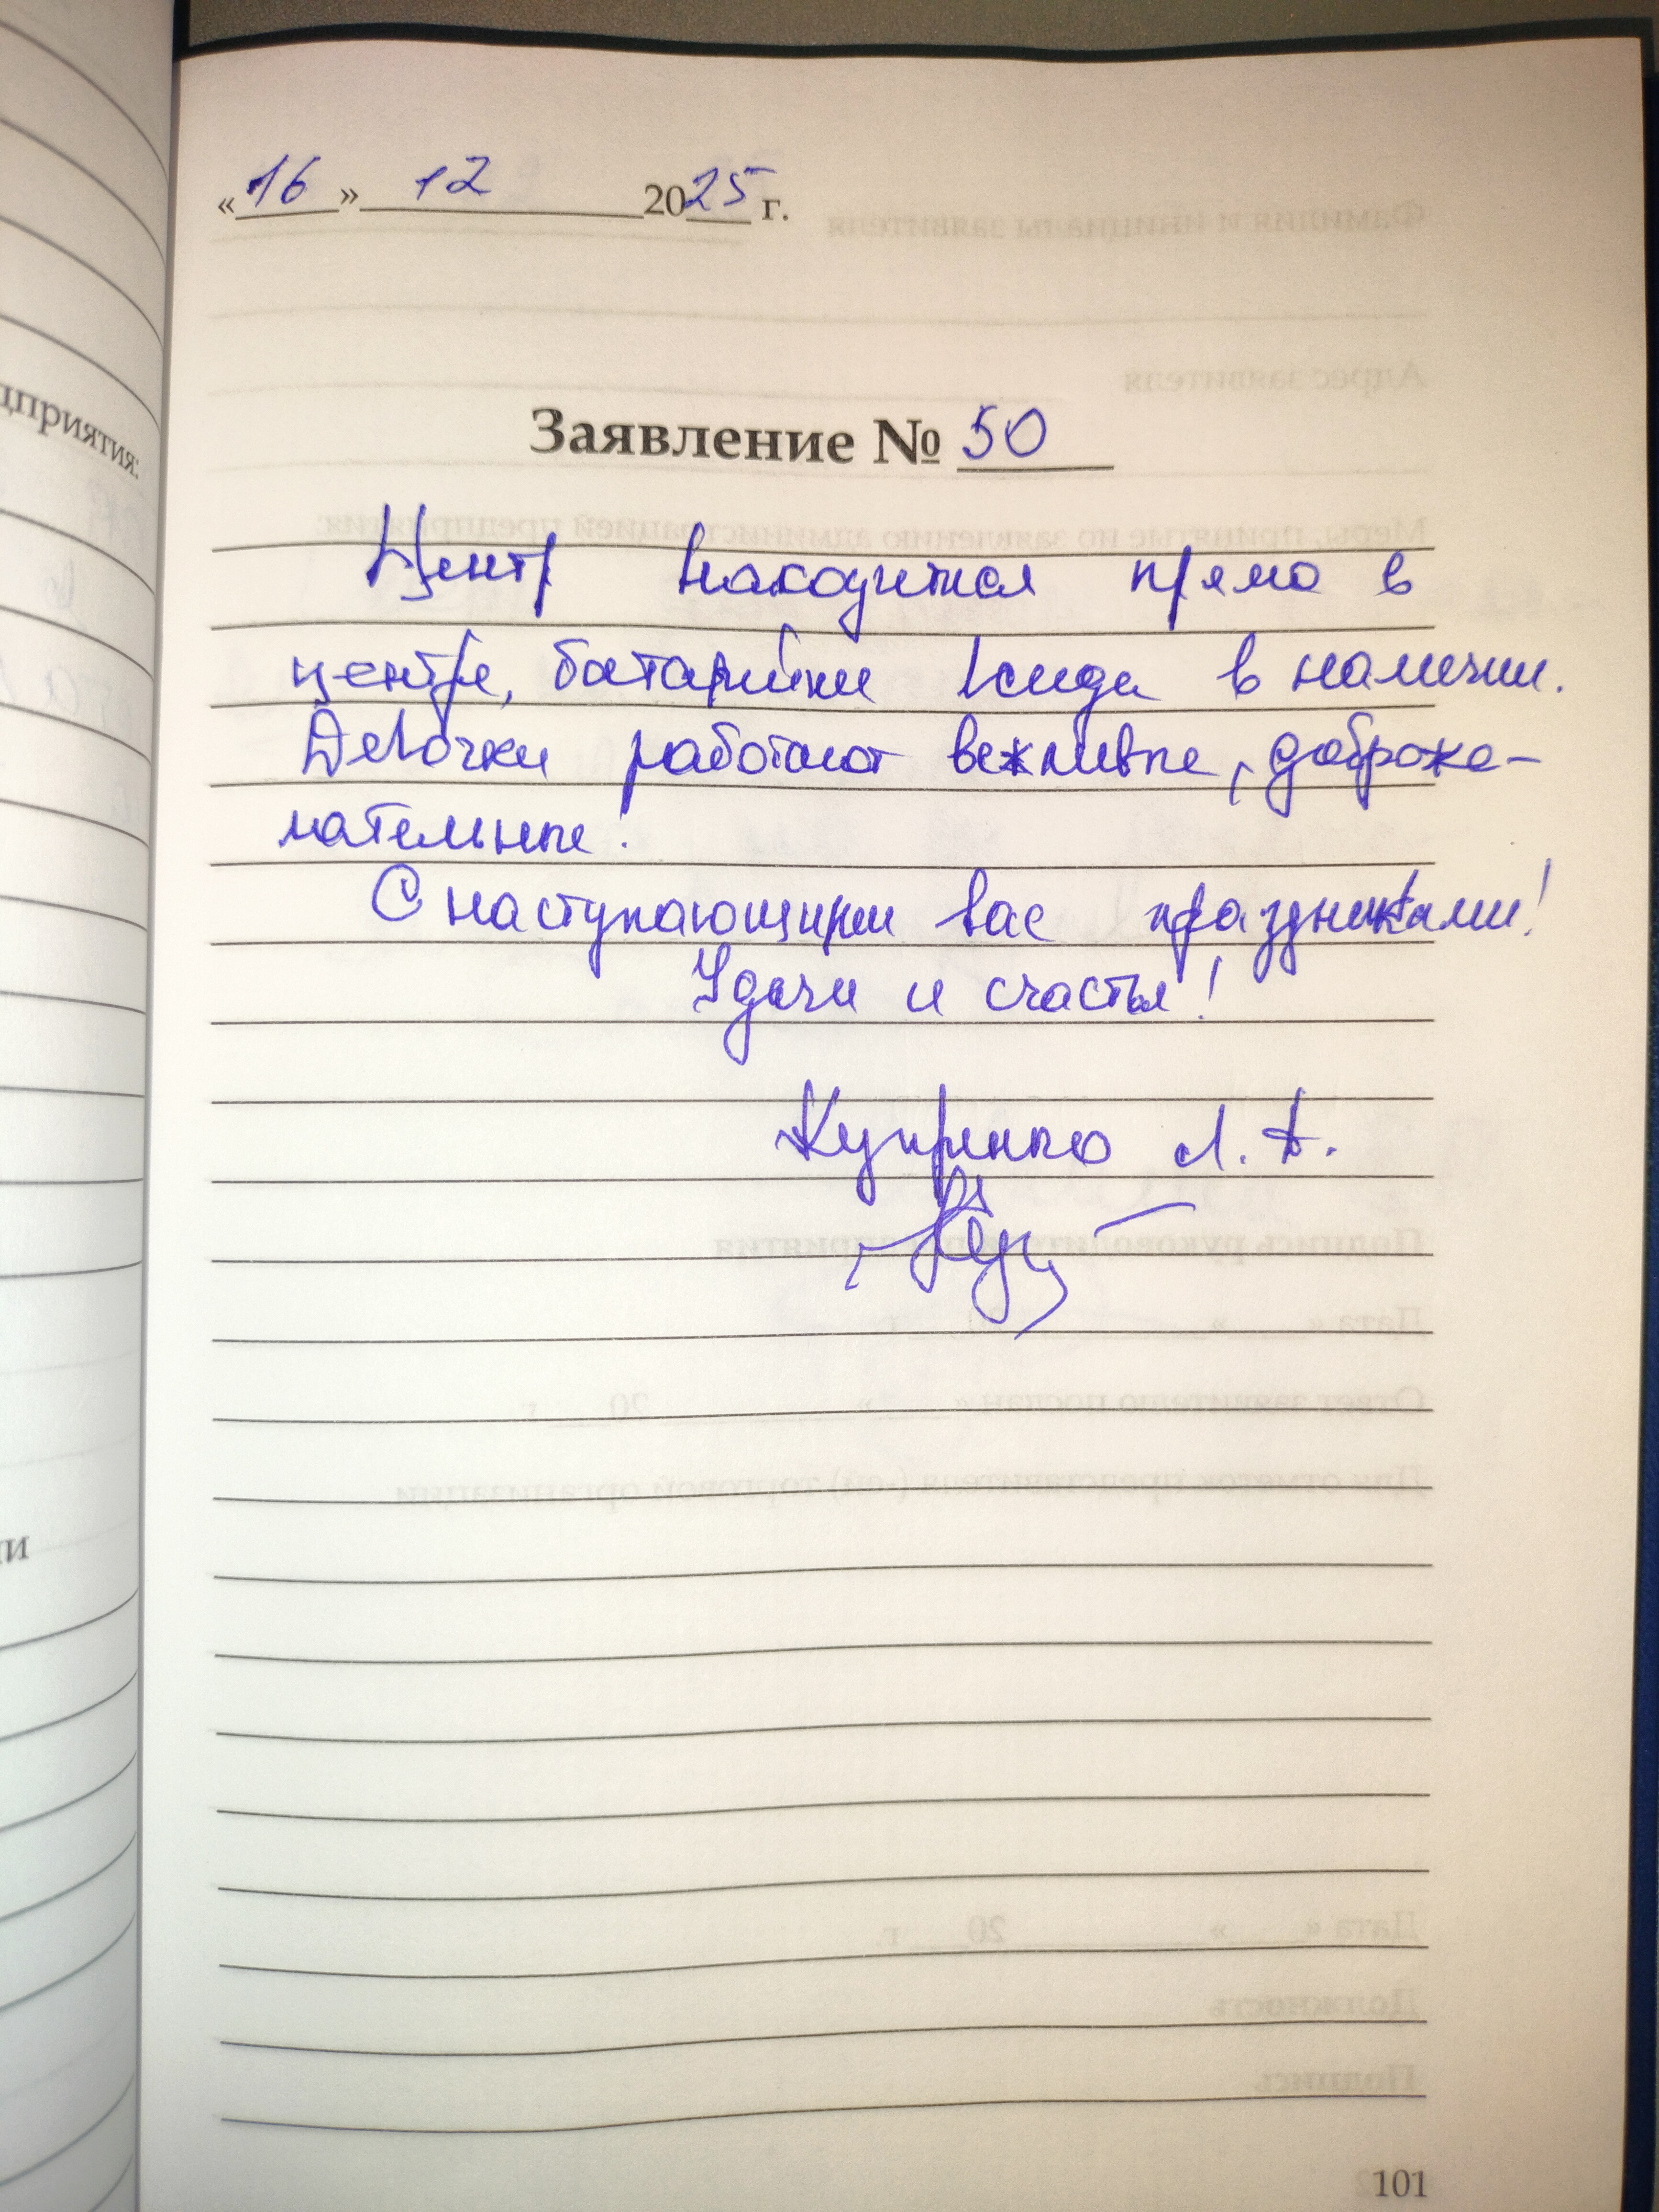 «16» 12 2025 г.
Заявление № 50
Центр находится прямо в
центре, батарейки всегда в наличии.
Девочки работают вежливые, доброже-
лательные!
С наступающими вас праздниками!
Удачи и счастья!
Л. А.
дприятия:
ии
101